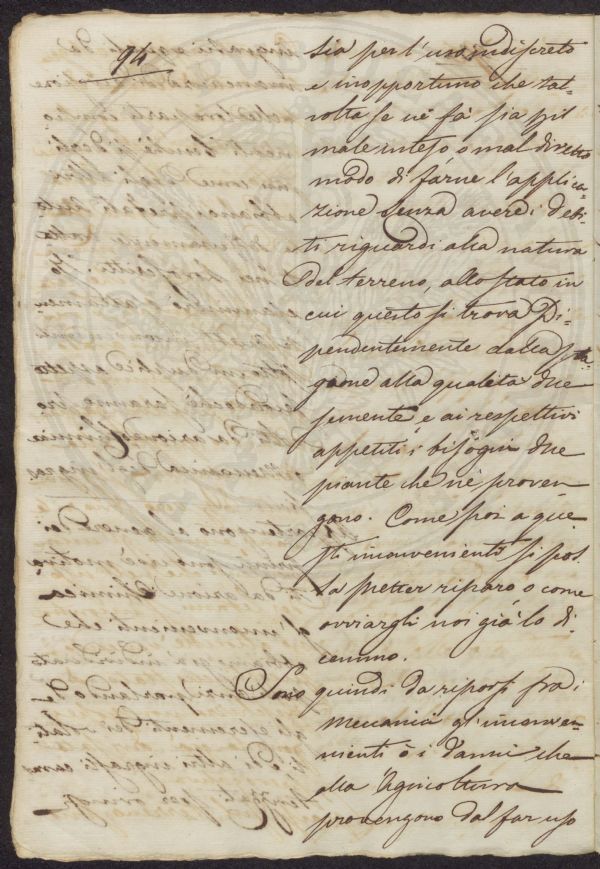 94
sia per l'uso indiscreto
e inopportuno che tal-
volta se nè fà sia pil
male inteso o mal diretto
modo di farne l'applica-
zione senza avere i det-
ti riguardi alla natura
del terreno, allo stato in
cui questo si trova di-
pendentemente dalla sta-
gione alla qualità due
semente, e ai respettivi
appetiti, bisogni due
piante che nè proven-
gono. Come poi a que-
sti inconvenienti si pos-
sa metter riparo o come
ovviargli noi già lo di-
cemmo.
Sono quindi da riporsi fra i
meccanici gl'inconve-
nienti ò i danni che
alla Agricoltura
provengono dal far uso